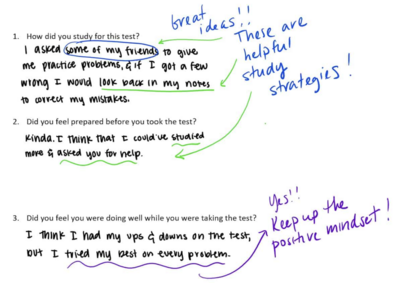 great
ideas!!
These are
helpful
study
strategies!
1. How did you study for this test?
I asked some of my friends to give
me practice problems, & if I got a few
wrong I would look back in my notes
to correct my mistakes.
2. Did you feel prepared before you took the test?
Kinda. I think that I could've studied
more & asked you for help.
3. Did you feel you were doing well while you were taking the test?
I think I had my ups & downs on the test,
but I tried my best on every problem.
Yes!!
Keep up the
positive mindset!